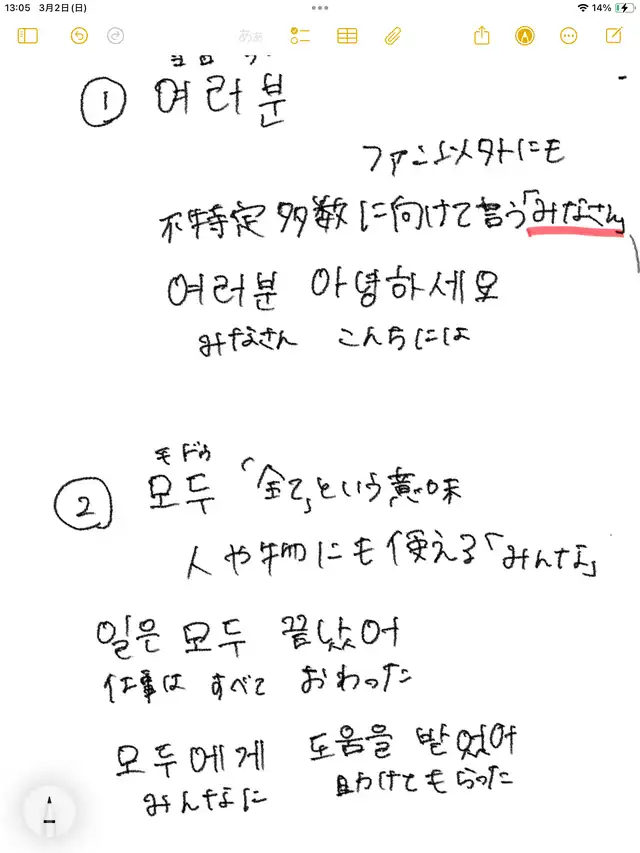 13:05 3月2日(日)
14%
① 여러분
ファン以外にも
不特定多数に向けて言う「みなさん」
여러분 안녕하세요
みなさん こんちには
モドゥ
② 모두 「全て」という意味
人や物にも使える「みんな」
일은 모두 끝났어
仕事は すべて おわった
모두에게 도움을 받었어
みんなに 助けてもらった